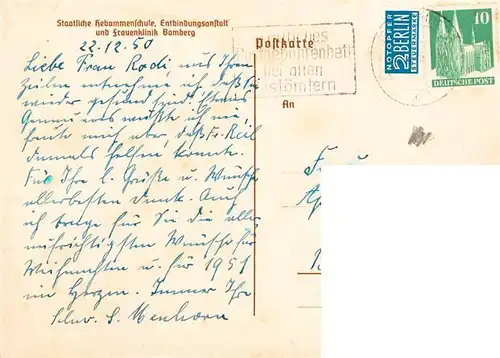 Staatliche Hebammenschule, Entbindungsanstalt
und Frauenklinik Bamberg
22.12.50
Liebe Frau Rodi, aus Ihren
Zeilen entnehme ich, daß Sie
wieder gesund sind.
Genaues wußte ich nie,
freute mich aber, daß Fr. Keil
damals helfen konnte.
Für Ihre l. Grüße u. Wünsche
allerbesten Dank. Auch
ich trage für Sie die aller
aufrichtigsten Wünsche für
Weihnachten u. für 1951
im Herzen. Immer Ihre
Schw. S.
Postkarte
An
bei allen
Postämtern
NOTOPFER
2 BERLIN
STEUERMARKE
10
DEUTSCHE POST